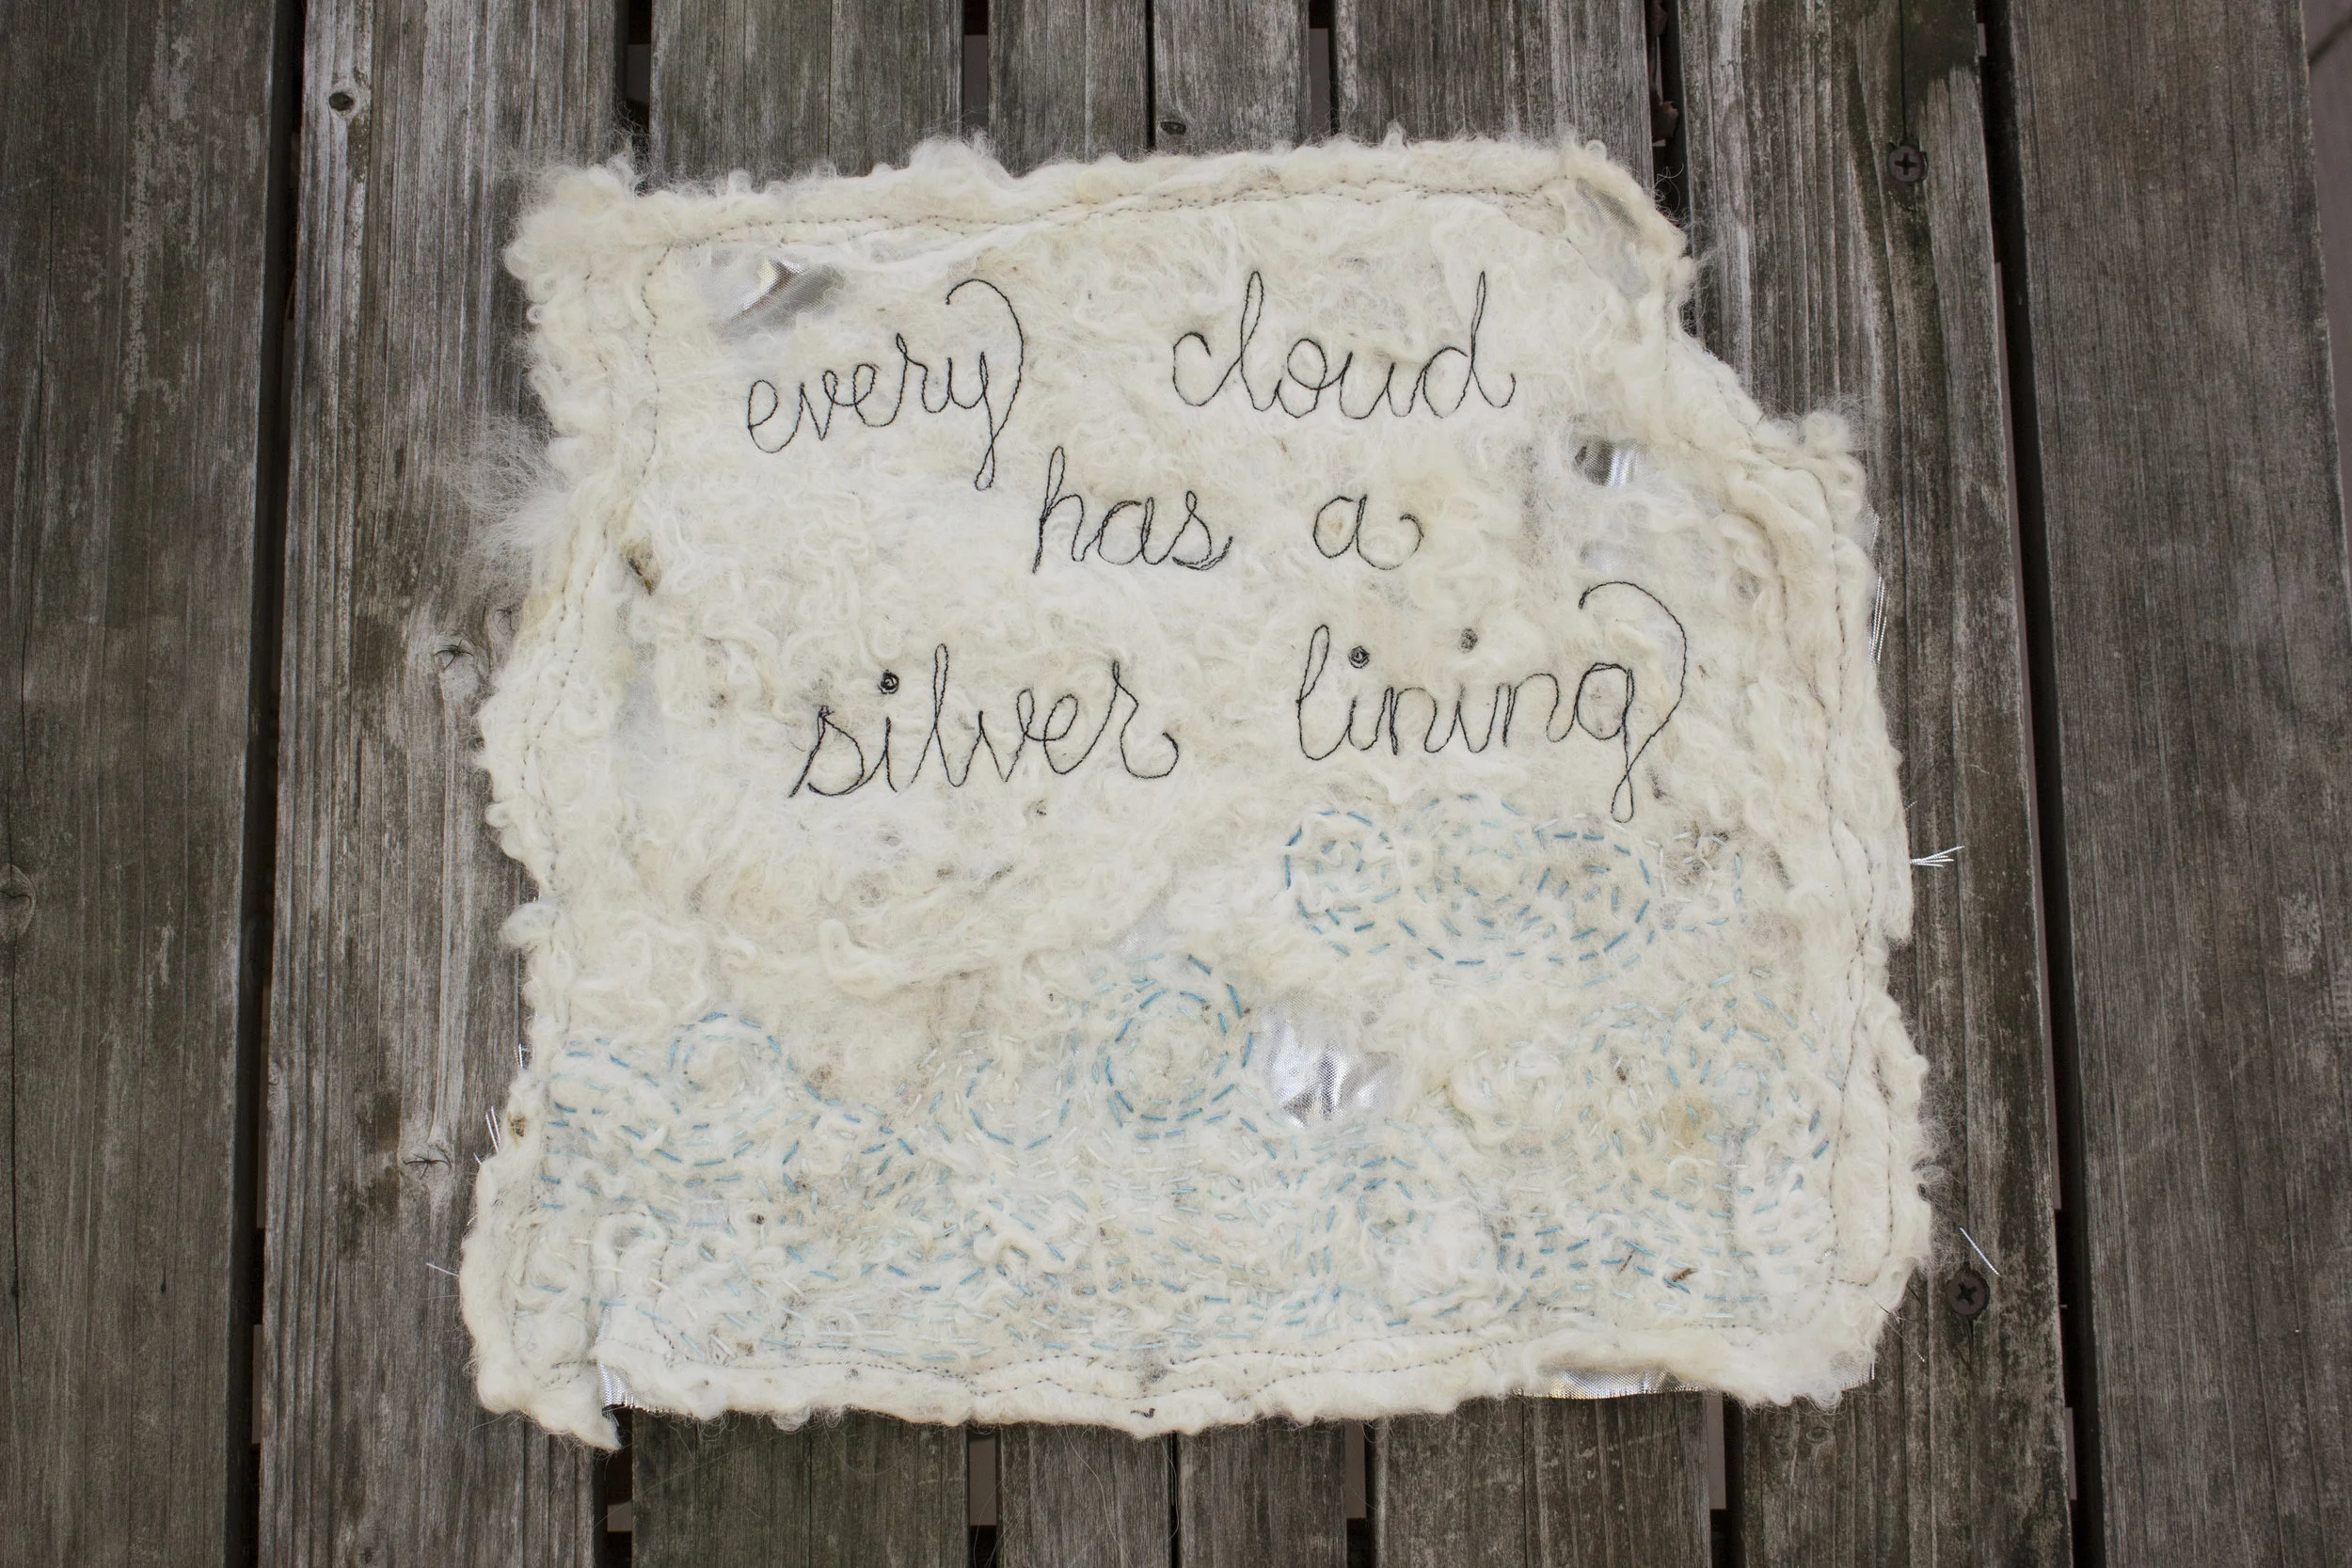 every cloud
has a
silver lining